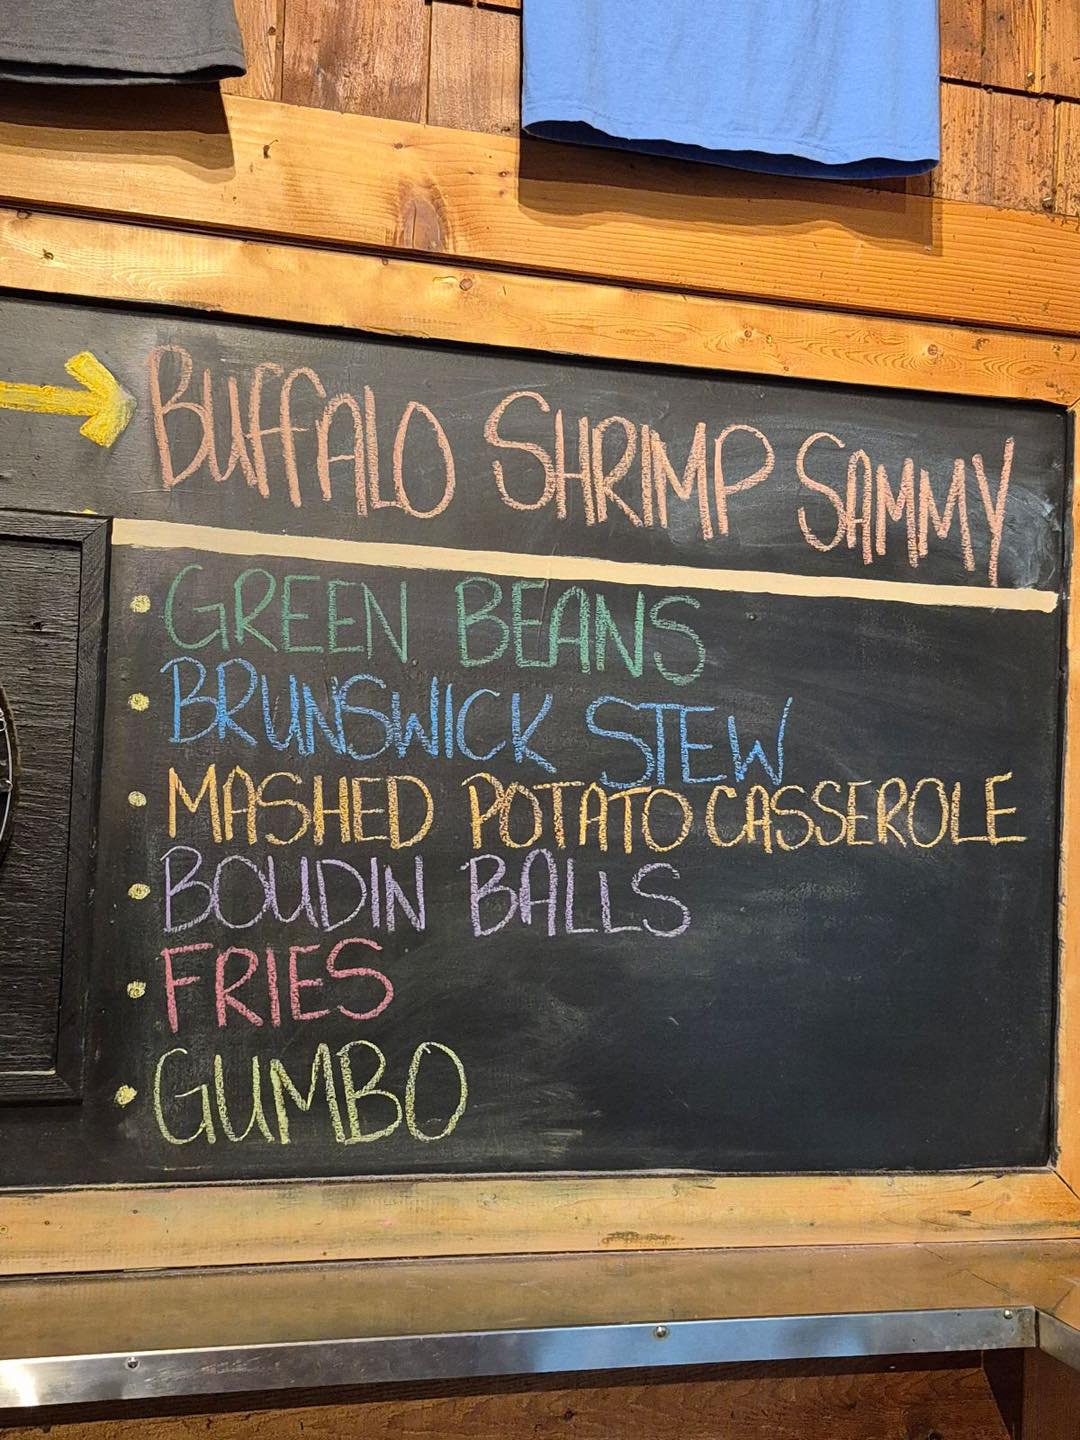 BUFFALO SHRIMP SAMMY
• GREEN BEANS
• BRUNSWICK STEW
• MASHED POTATO CASSEROLE
• BOUDIN BALLS
• FRIES
• GUMBO